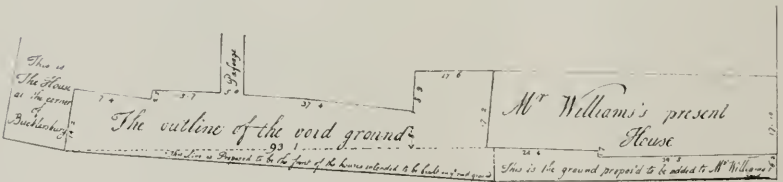 This is
The House
at the corner
of
Bucklersbury
Passage
7 4
3 7
37 4
17 6
8 9
17 2
17 10
The outline of the void ground
93 1
Mr Williams's present
House
24 6
24 5
This line is Proposed to be the front of the houses intended to be built on ground
This is the ground propos'd to be added to Mr Williams's